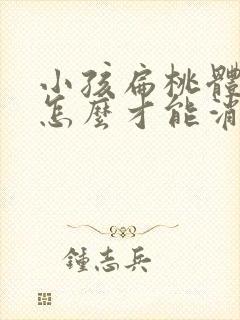 小孩扁桃體
怎麼才能消
鍾志兵